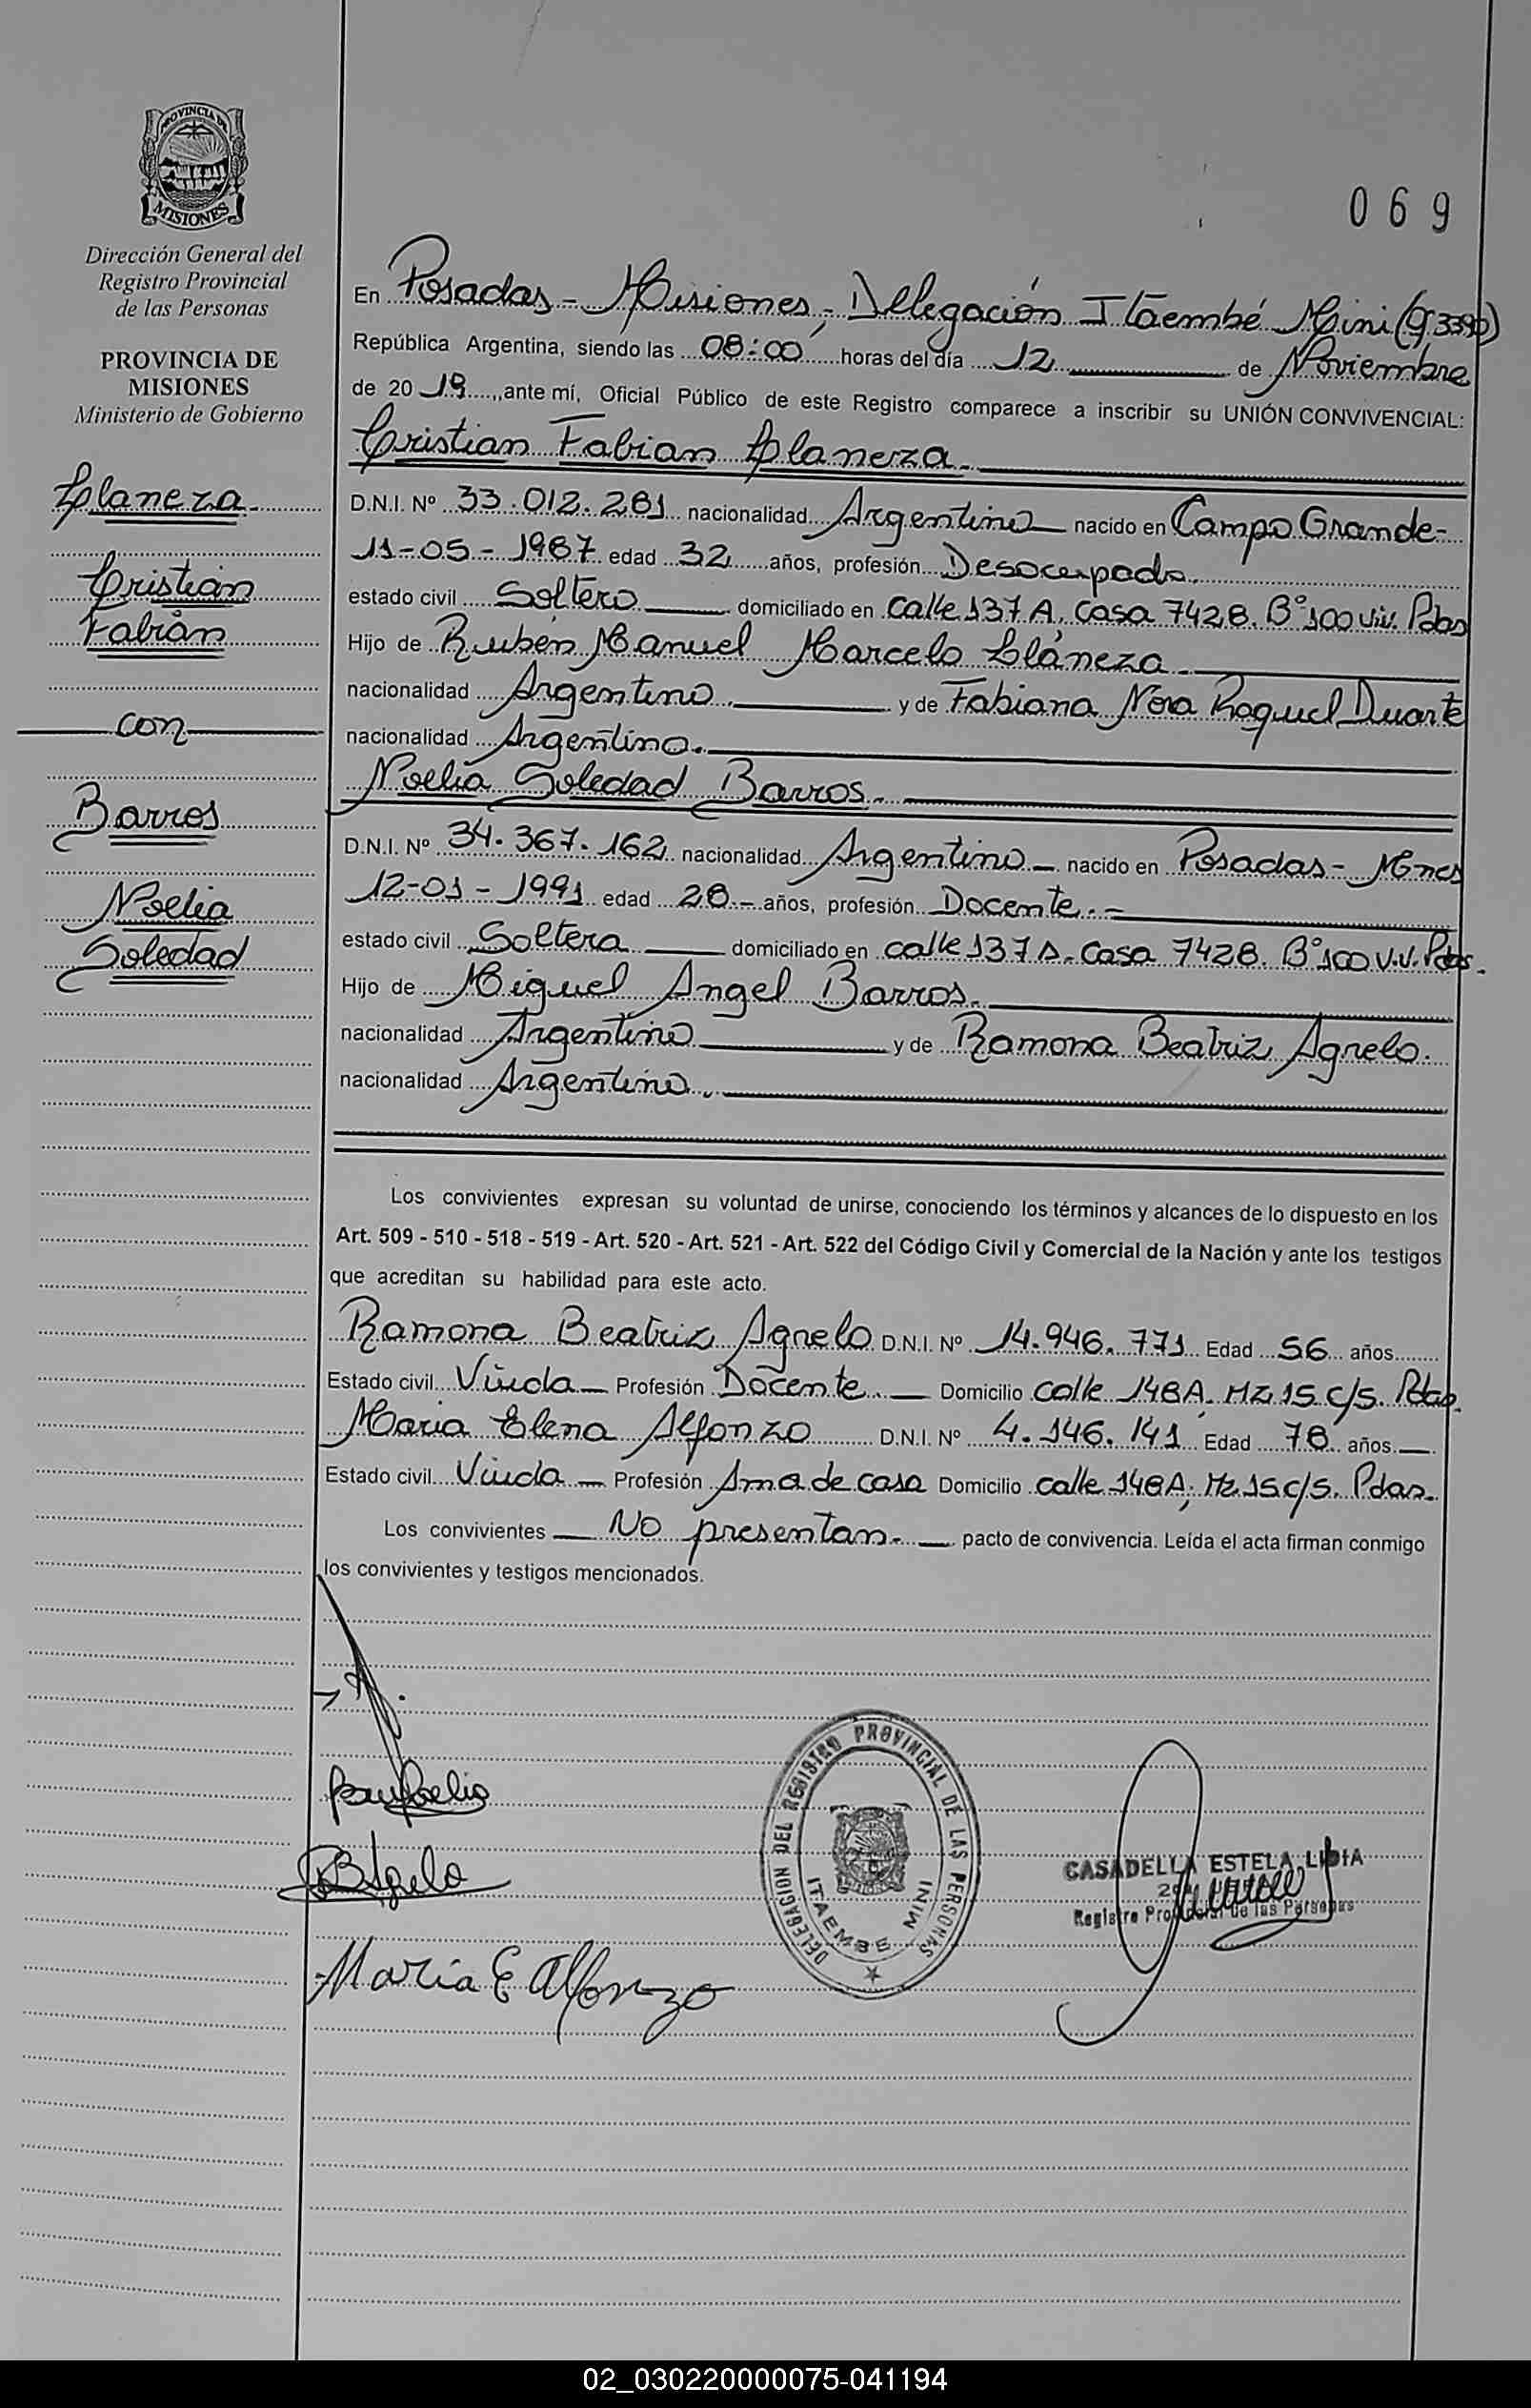 PROVINCIA DE
MISIONES
Dirección General del
Registro Provincial
de las Personas
PROVINCIA DE
MISIONES
Ministerio de Gobierno
Llaneza
Cristian
Fabián
con
Barros
Noelia
Soledad
069
En Posadas - Misiones, Delegación Itaembé Mini (9.3390)
República Argentina, siendo las 08:00 horas del día 12 de Noviembre
de 2019, ante mí, Oficial Público de este Registro comparece a inscribir su UNIÓN CONVIVENCIAL:
Cristian Fabian Llaneza.
D.N.I. Nº 33.012.281 nacionalidad Argentino nacido en Campo Grande-
11-05-1987 edad 32 años, profesión Desocupado.
estado civil Soltero domiciliado en calle 137 A. Casa 7428. Bº 100 viv. Pdas
Hijo de Rubén Manuel Marcelo Llaneza
nacionalidad Argentino. y de Fabiana Nora Raquel Duarte
nacionalidad Argentina.
Noelia Soledad Barros.
D.N.I. Nº 34.367.162 nacionalidad Argentina nacido en Posadas - Mnes
12-01-1991 edad 28.- años, profesión Docente.-
estado civil Soltera domiciliado en calle 137 A. Casa 7428. Bº 100 v.v. Pdas.
Hijo de Miguel Angel Barros.
nacionalidad Argentino y de Ramona Beatriz Agnelo.
nacionalidad Argentina.
Los convivientes expresan su voluntad de unirse, conociendo los términos y alcances de lo dispuesto en los
Art. 509 - 510 - 518 - 519 - Art. 520 - Art. 521 - Art. 522 del Código Civil y Comercial de la Nación y ante los testigos
que acreditan su habilidad para este acto.
Ramona Beatriz Agnelo D.N.I. Nº 14.946.771 Edad 56 años
Estado civil Viuda Profesión Docente. Domicilio calle 148A. Mz 15 c/5. Pdas.
Maria Elena Alfonzo D.N.I. Nº 4.146.141 Edad 78 años
Estado civil Viuda Profesión Ama de casa Domicilio calle 148A, Mz 15 c/5. Pdas.
Los convivientes No presentan. pacto de convivencia. Leída el acta firman conmigo
los convivientes y testigos mencionados.
María E Alfonzo
DELEGACION DEL REGISTRO PROVINCIAL DE LAS PERSONAS
ITAEMBE MINI
CASADELLA ESTELA LIDIA
Registro Provincial de las Personas
02_030220000075-041194